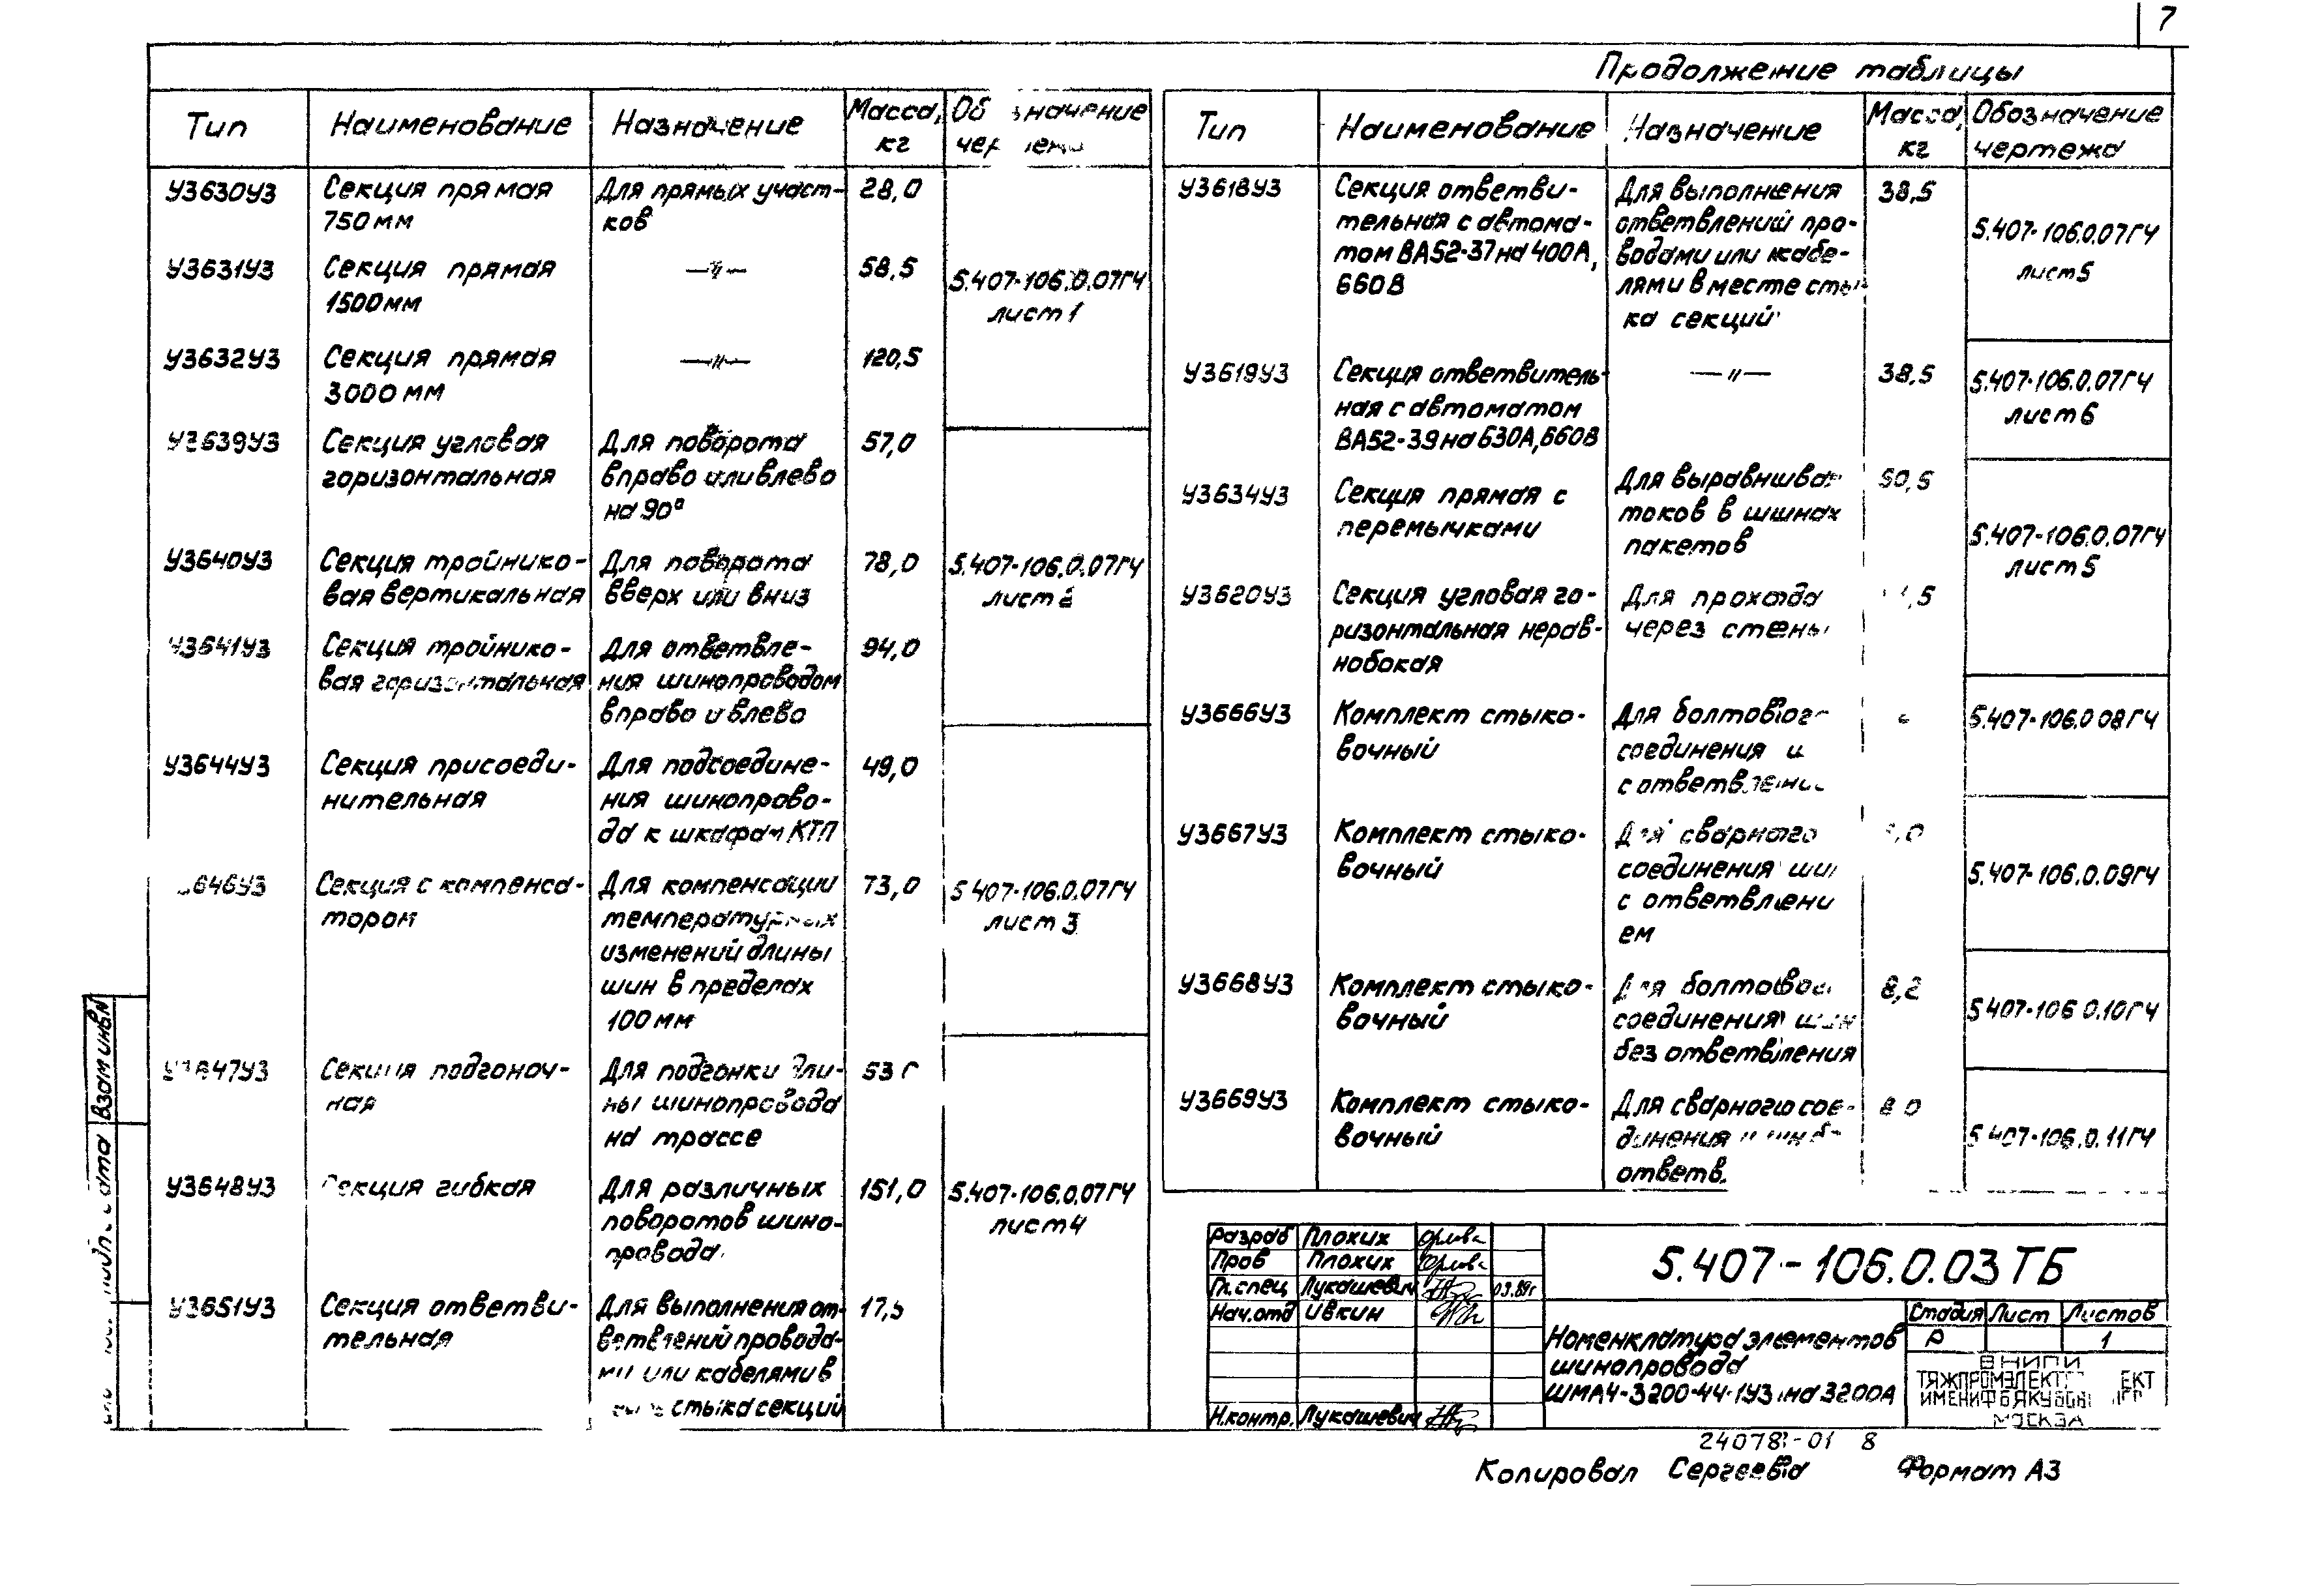 7
Продолжение таблицы
Тип Наименование Назначение Масса, кг
У3630У3 Секция прямая Для прямых участ- 28,0
750 мм ков
У3631У3 Секция прямая —"— 58,5 5.407-106.0.07ГЧ
1500 мм лист 1
У3632У3 Секция прямая —"— 120,5
3000 мм
У3639У3 Секция угловая Для поворота 57,0
горизонтальная вправо или влево
на 90°
У3640У3 Секция тройнико- Для поворота 78,0 5.407-106.0.07ГЧ
вая вертикальная вверх или вниз лист 2
У3641У3 Секция тройнико- Для ответвле- 94,0
вая горизонтальная ния шинопроводом
вправо и влево
У3644У3 Секция присоеди- Для подсоедине- 49,0
нительная ния шинопрово-
да к шкафам КТП
Секция с компенса- Для компенсации 73,0 5.407-106.0.07ГЧ
тором температурных лист 3
изменений длины
шин в пределах
100 мм
Секция подгоноч- Для подгонки дли-
ная ны шинопровода
на трассе
У3648У3 Секция гибкая Для различных 151,0 5.407-106.0.07ГЧ
поворотов шино- лист 4
провода
У3651У3 Секция ответви- Для выполнения от- 17,5
тельная ветвлений провода-
ми или кабелями в
стыка секций
Тип Наименование Назначение Масса, Обозначение
кг чертежа
У3618У3 Секция ответви- Для выполнения 38,5
тельная с автома- ответвлений про- 5.407-106.0.07ГЧ
том ВА52-37 на 400А, водами или кабе- лист 5
660В лями в месте сты-
ка секций
У3619У3 Секция ответвитель- —"— 38,5 5.407-106.0.07ГЧ
ная с автоматом лист 6
ВА52-39 на 630А, 660В
У3634У3 Секция прямая с Для
перемычками токов в шинах 5.407-106.0.07ГЧ
пакетов лист 5
У3620У3 Секция угловая го- Для прохода
ризонтальная нерав- через стены
нобокая
У3666У3 Комплект стыко- Для 5.407-106.0.08ГЧ
вочный соединения
с
У3667У3 Комплект стыко- Для сварного
вочный соединения 5.407-106.0.09ГЧ
с ответвлени
ем
У3668У3 Комплект стыко- Для 8,2 5.407-106.0.10ГЧ
вочный соединения шин
без ответвления
У3669У3 Комплект стыко- Для сварного сое- 8,0
вочный динения 5.407-106.0.11ГЧ
ответв.
Разраб Плохих
Пров Плохих
Гл. спец Лукашевич 03.89г
Нач. отд Ивкин
Н. контр. Лукашевич
5.407-106.0.03ТБ
Номенклатура элементов
шинопровода
ШМА4-3200-44-1У3 на 3200А
Стадия Лист Листов
Р 1
ВНИПИ
МОСКВА
8
Копировал Сергеева Формат А3
Взам инв N